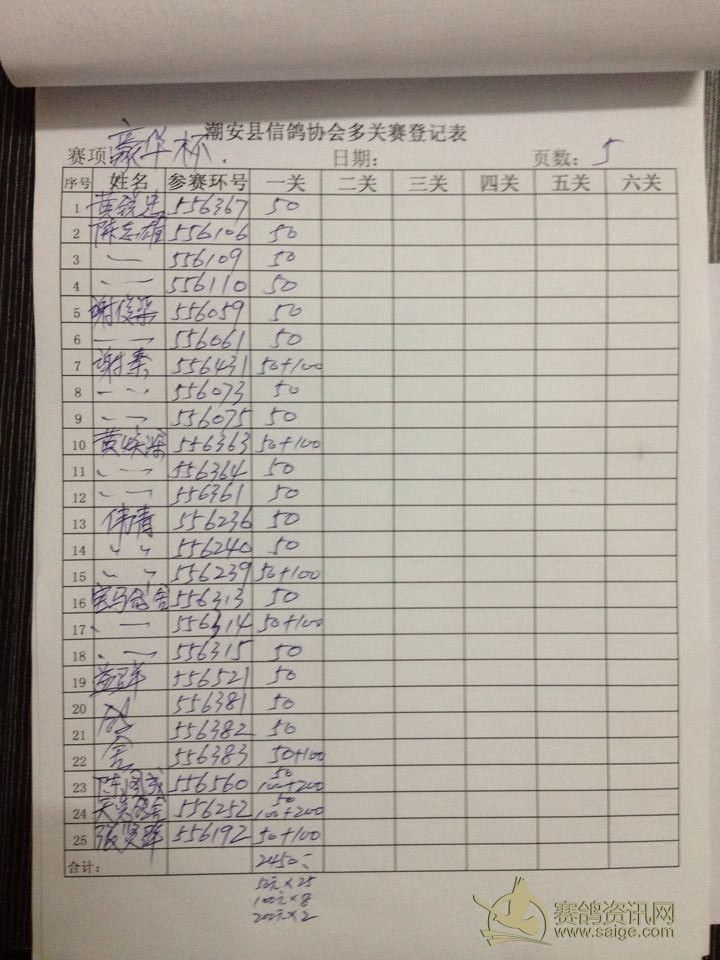 潮安县信鸽协会多关赛登记表
赛项: 豪华杯. 日期: 页数: 5
序号 姓名 参赛环号 一关 二关 三关 四关 五关 六关
1 黄 556367 50
2 陈志雄 556106 50
3 556109 50
4 556110 50
5 谢俊梁 556059 50
6 556061 50
7 谢 556431 50+100
8 556073 50
9 556075 50
10 黄焕 556363 50+100
11 556364 50
12 556361 50
13 伟 556236 50
14 〃 〃 556240 50
15 〃 〃 556239 50+100
16 宝马鸽舍 556313 50
17 556314 50+100
18 556315 50
19 556521 50
20 556381 50
21 556382 50
22 舍 556383 50+100
23 陈 556560 50 100+200
24 天 鸽舍 556252 50 100+200
25 张贤群 556192 50+100
合计: 2450
50元×25
100元×8
200元×2
赛鸽资讯网
www.saige.com